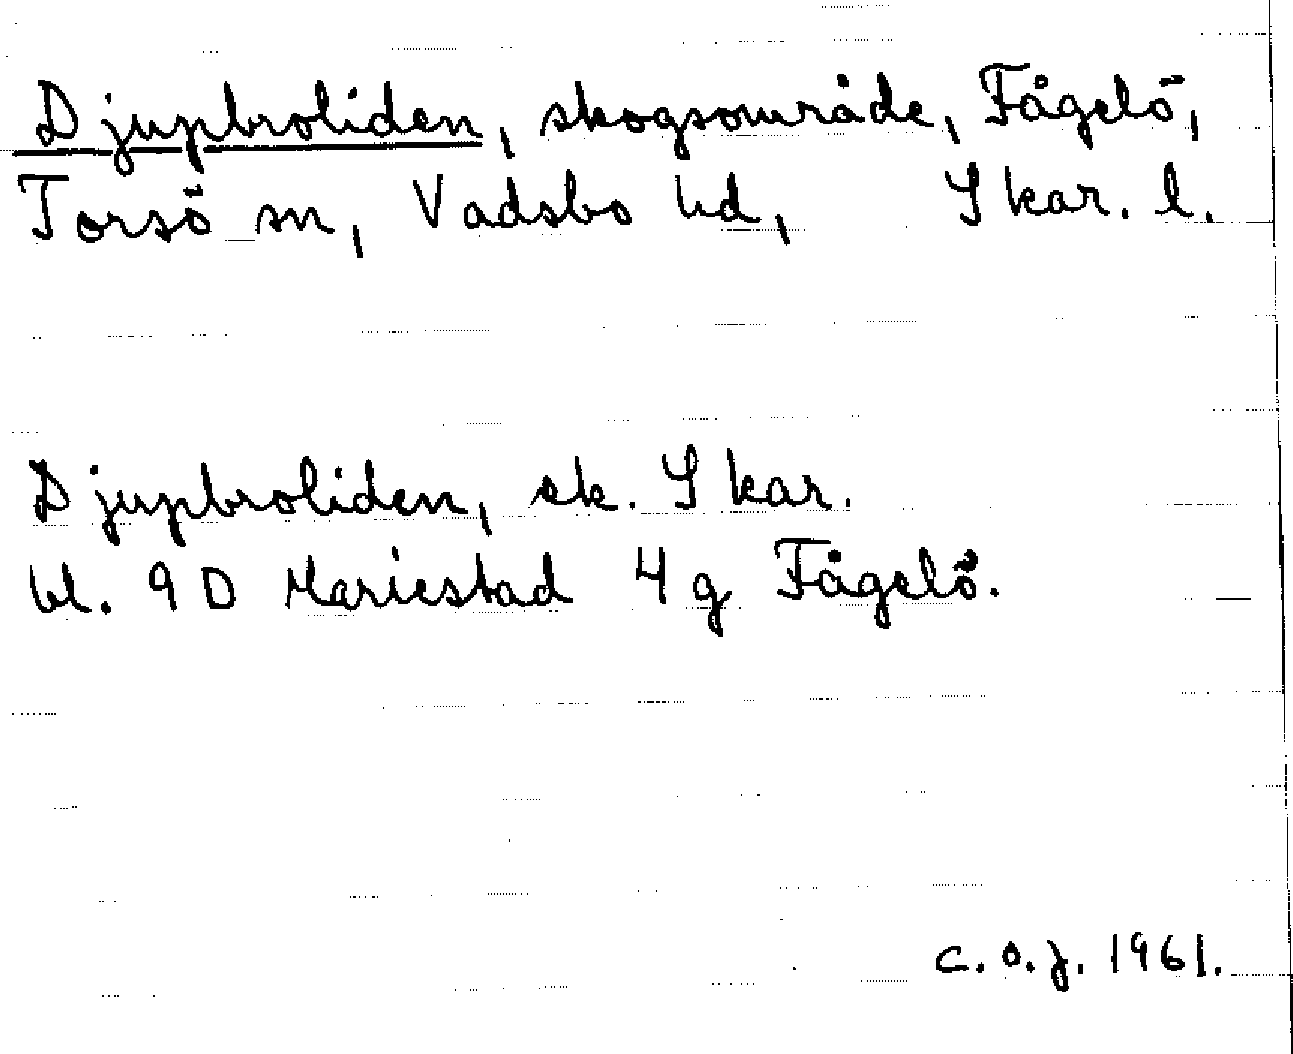 Djupbroliden, skogsområde, Fågelö,
Torsö sn, Vadsbo hd, Skar. l.
Djupbroliden, sk. Skar.
bl. 9D Mariestad 4g Fågelö.
C.O.J. 1961.